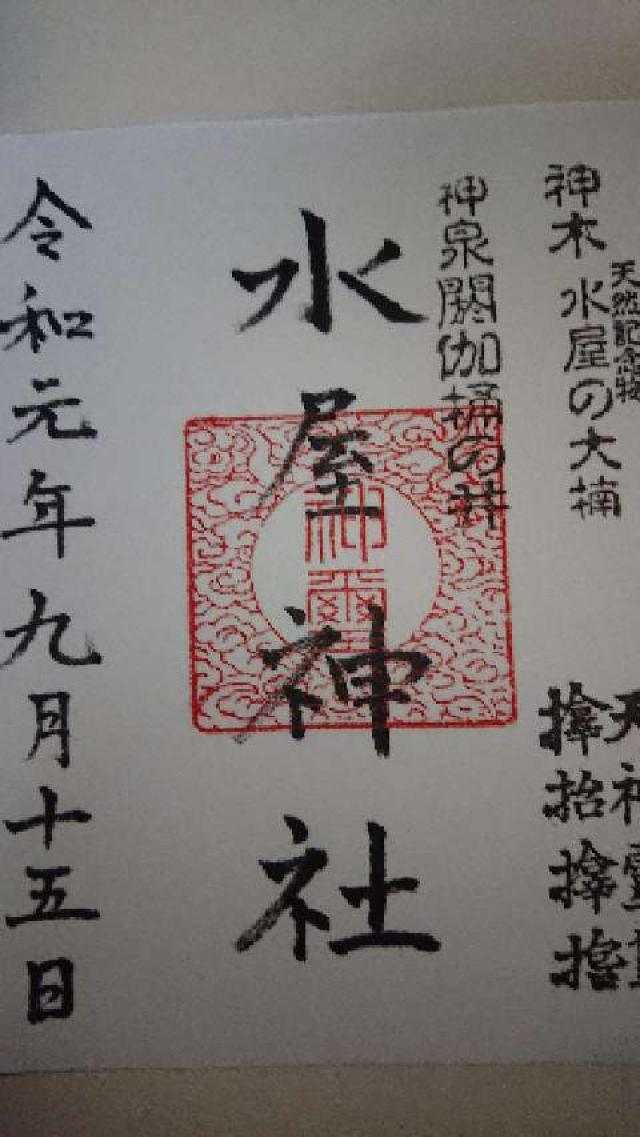 天然記念物
神木 水屋の大楠
神泉閼伽桶の井
水屋神社
神璽
令和元年九月十五日